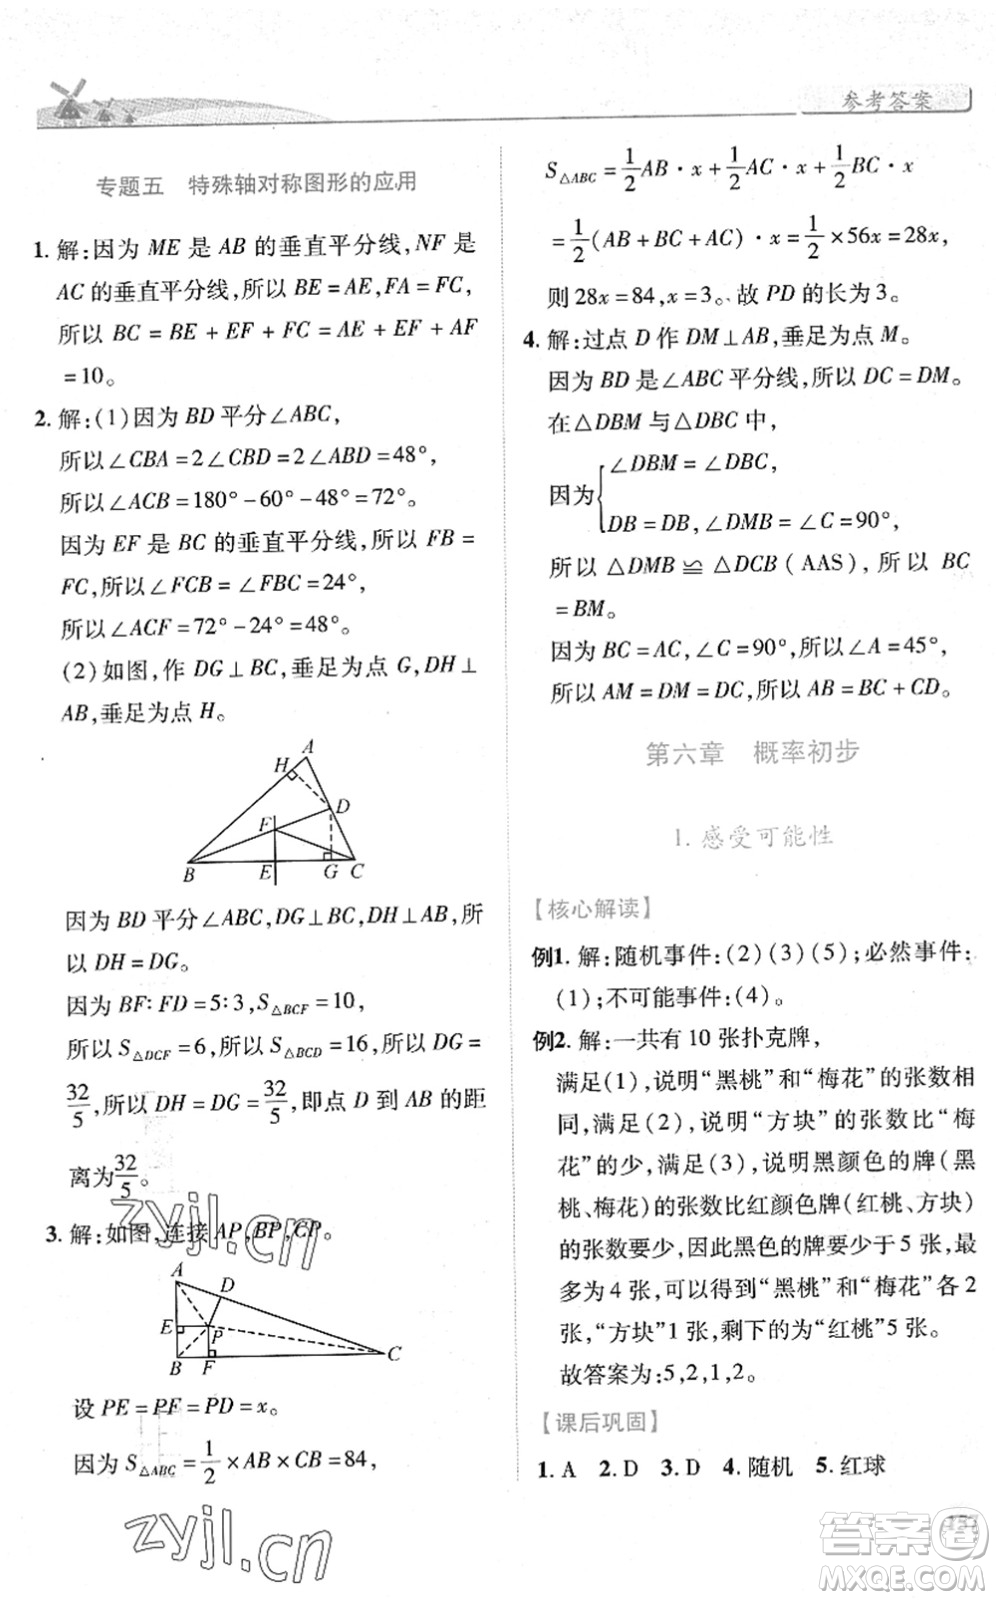 参考答案
专题五 特殊轴对称图形的应用
1. 解:因为 ME 是 AB 的垂直平分线,NF 是
AC 的垂直平分线,所以 BE=AE,FA=FC,
所以 BC=BE+EF+FC=AE+EF+AF
=10。
2. 解:(1)因为 BD 平分∠ABC,
所以∠CBA=2∠CBD=2∠ABD=48°,
所以∠ACB=180°-60°-48°=72°。
因为 EF 是 BC 的垂直平分线,所以 FB=
FC,所以∠FCB=∠FBC=24°,
所以∠ACF=72°-24°=48°。
(2)如图,作 DG⊥BC,垂足为点 G,DH⊥
AB,垂足为点 H。
A
H
D
F
B E G C
因为 BD 平分∠ABC,DG⊥BC,DH⊥AB,所
以 DH=DG。
因为 BF∶FD=5∶3,S△BCF=10,
所以 S△DCF=6,所以 S△BCD=16,所以 DG=
32/5,所以 DH=DG=32/5,即点 D 到 AB 的距
离为32/5。
3. 解:如图,连接 AP,BP,CP。
A D
E P
B F C
设 PE=PF=PD=x。
因为 S△ABC=1/2×AB×CB=84,
S△ABC=1/2AB·x+1/2AC·x+1/2BC·x
=1/2(AB+BC+AC)·x=1/2×56x=28x,
则 28x=84,x=3。故 PD 的长为 3。
4. 解:过点 D 作 DM⊥AB,垂足为点 M。
因为 BD 是∠ABC 平分线,所以 DC=DM。
在△DBM 与△DBC 中,
∠DBM=∠DBC,
因为{
DB=DB,∠DMB=∠C=90°,
所以△DMB≌△DCB(AAS),所以 BC
=BM。
因为 BC=AC,∠C=90°,所以∠A=45°,
所以 AM=DM=DC,所以 AB=BC+CD。
第六章 概率初步
1. 感受可能性
【核心解读】
例1. 解:随机事件:(2)(3)(5);必然事件:
(1);不可能事件:(4)。
例2. 解:一共有 10 张扑克牌,
满足(1),说明“黑桃”和“梅花”的张数相
同,满足(2),说明“方块”的张数比“梅
花”的少,满足(3),说明黑颜色的牌(黑
桃、梅花)的张数比红颜色牌(红桃、方块)
的张数要少,因此黑色的牌要少于 5 张,最
多为 4 张,可以得到“黑桃”和“梅花”各 2
张,“方块”1 张,剩下的为“红桃”5 张。
故答案为:5,2,1,2。
【课后巩固】
1. A 2. D 3. D 4. 随机 5. 红球
zyjl.cn
zyjl.cn
答案圈
MXQE.COM